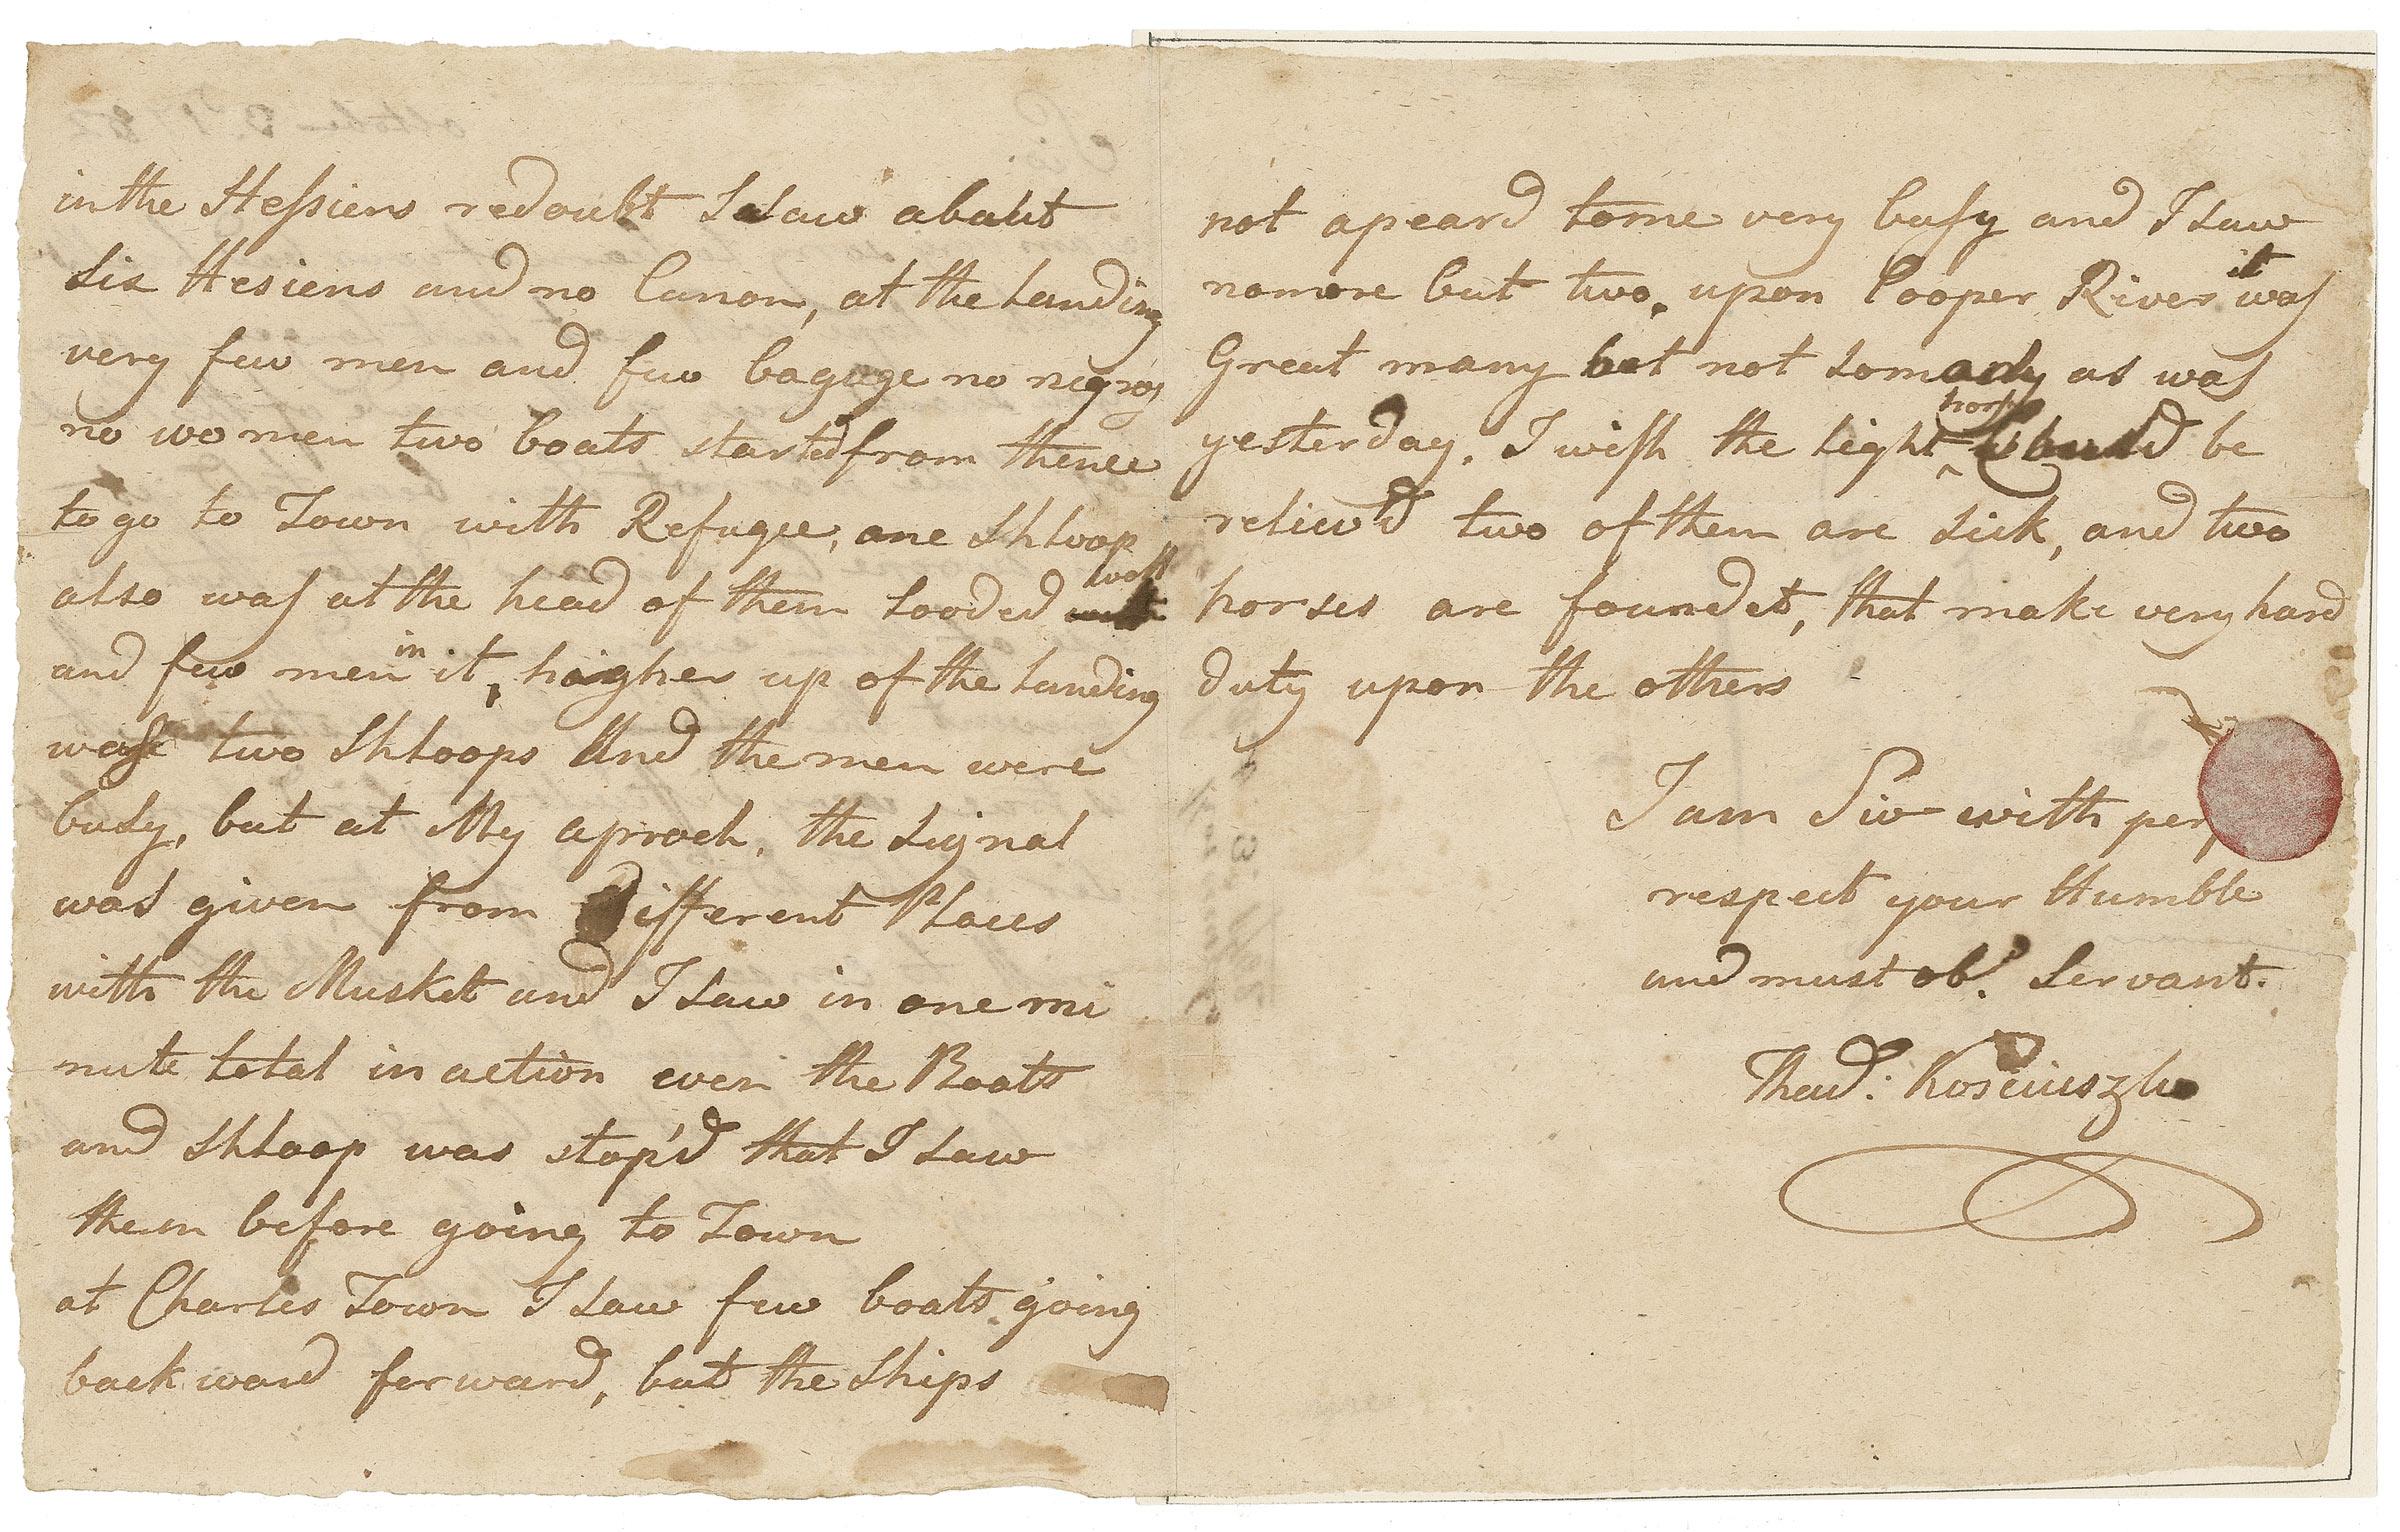 in the Hessiens redoubt I saw about
six Hesiens and no Canon, at the Landing
very few men and few bagage no negros
no women two boats started from thence
to go to Town with Refugee, one Shloop
also was at the head of them Looded well
and few men in it, higher up of the Landing
wase two Shloops And the men were
busy, but at My aproch, the Signal
was given from different Places
with the Musket and I saw in one mi
nute total in action even the Boats
and Shloop was stop'd that I saw
them before going to Town
at Charles Town I saw few boats going
back ward forward, but the Ships
not apeard to me very busy and I saw
nomore but two, upon Cooper River it was
Great many but not somany as was
yesterday. I wish the light horse should be
reliev'd two of them are sick, and two
horses are foundet, that make very hard
duty upon the others
I am Sir with per
respect your Humble
and must ob.t Servant.
Thad: Kosciuszko